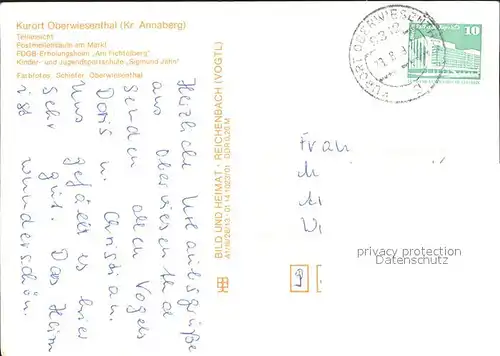 Kurort Oberwiesenthal (Kr. Annaberg)
Teilansicht
Postmeilensäule am Markt
FDGB-Erholungsheim „Am Fichtelberg“
Kinder- und Jugendsportschule „Sigmund Jähn“
Farbfotos: Schlefer Oberwiesenthal
Herzliche Urlaubsgrüße
aus Oberwiesenthal
senden allen Vogels
Doris u. Christian.
Uns gefällt es hier
sehr gut. Das Heim
ist wunderschön.
BILD UND HEIMAT · REICHENBACH (VOGTL)
A1/19/26/13 · 01 14 1023/01 DDR 0,20 M
KURORT OBERWIESENTHAL
10
Frau
privacy protection
Datenschutz